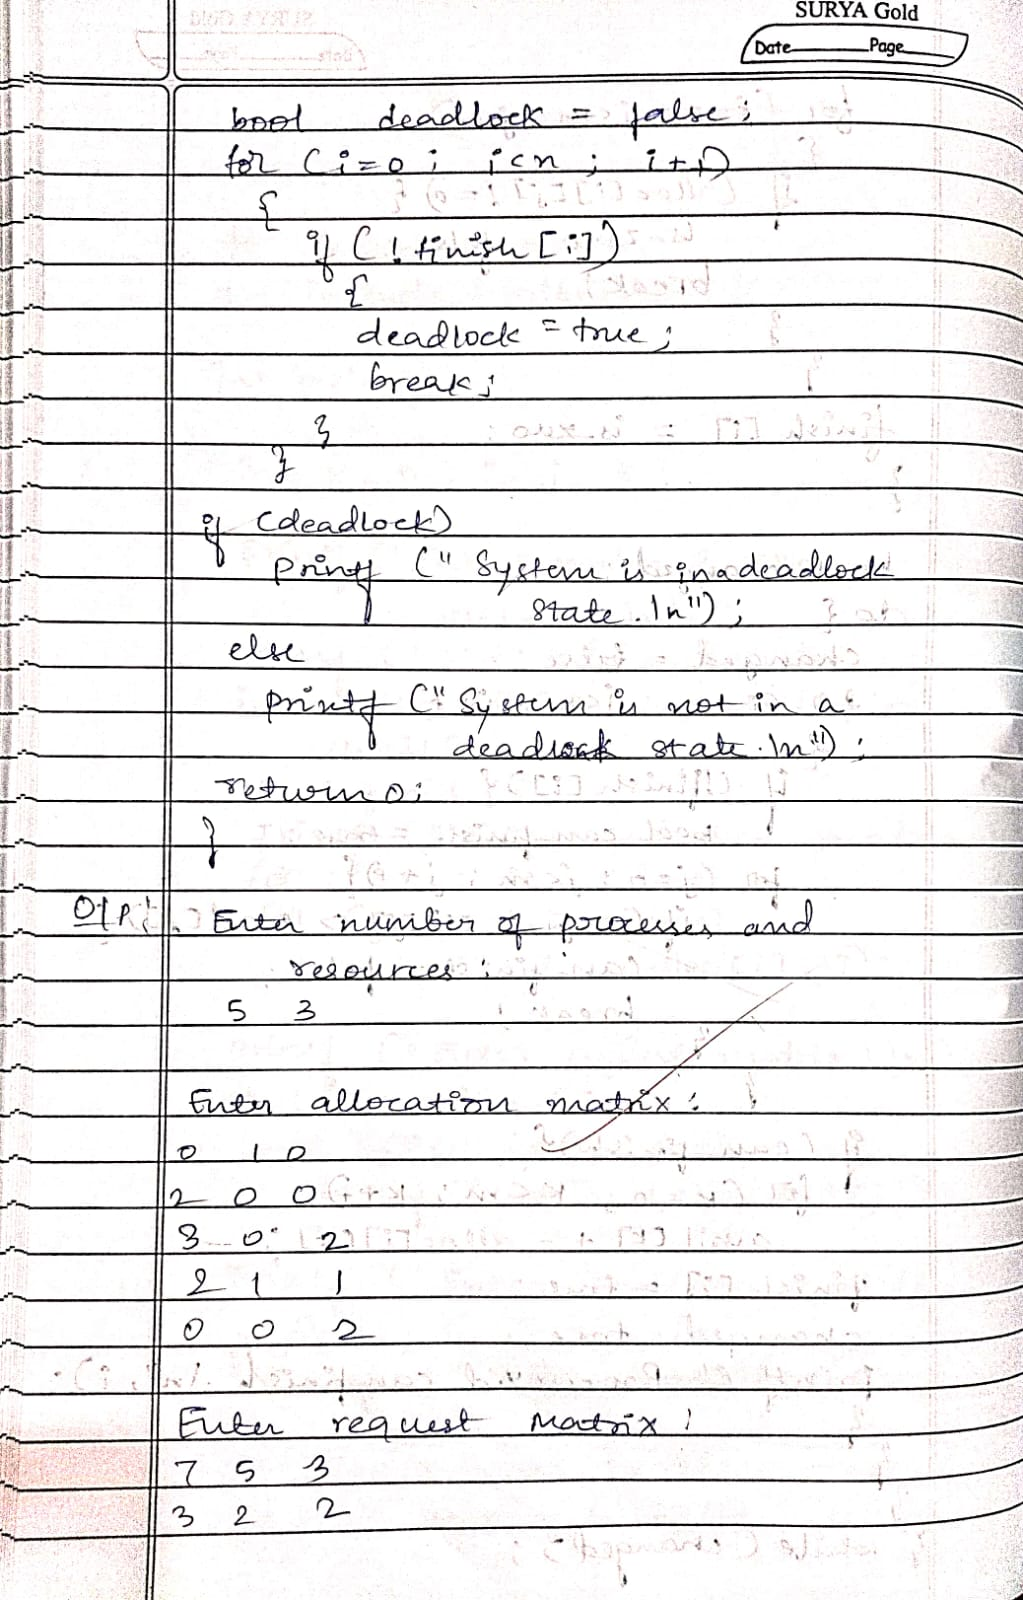 SURYA Gold
Date Page
bool deadlock = false;
for (i=0; i<n; i++)
{
if (!finish[i])
{
deadlock = true;
break;
}
}
if (deadlock)
printf (" System is in a deadlock
state.\n");
else
printf (" System is not in a
deadlock state.\n");
return 0;
}
O/P: Enter number of processes and
resources :
5 3
Enter allocation matrix :
0 1 0
2 0 0
3 0 2
2 1 1
0 0 2
Enter request Matrix :
7 5 3
3 2 2